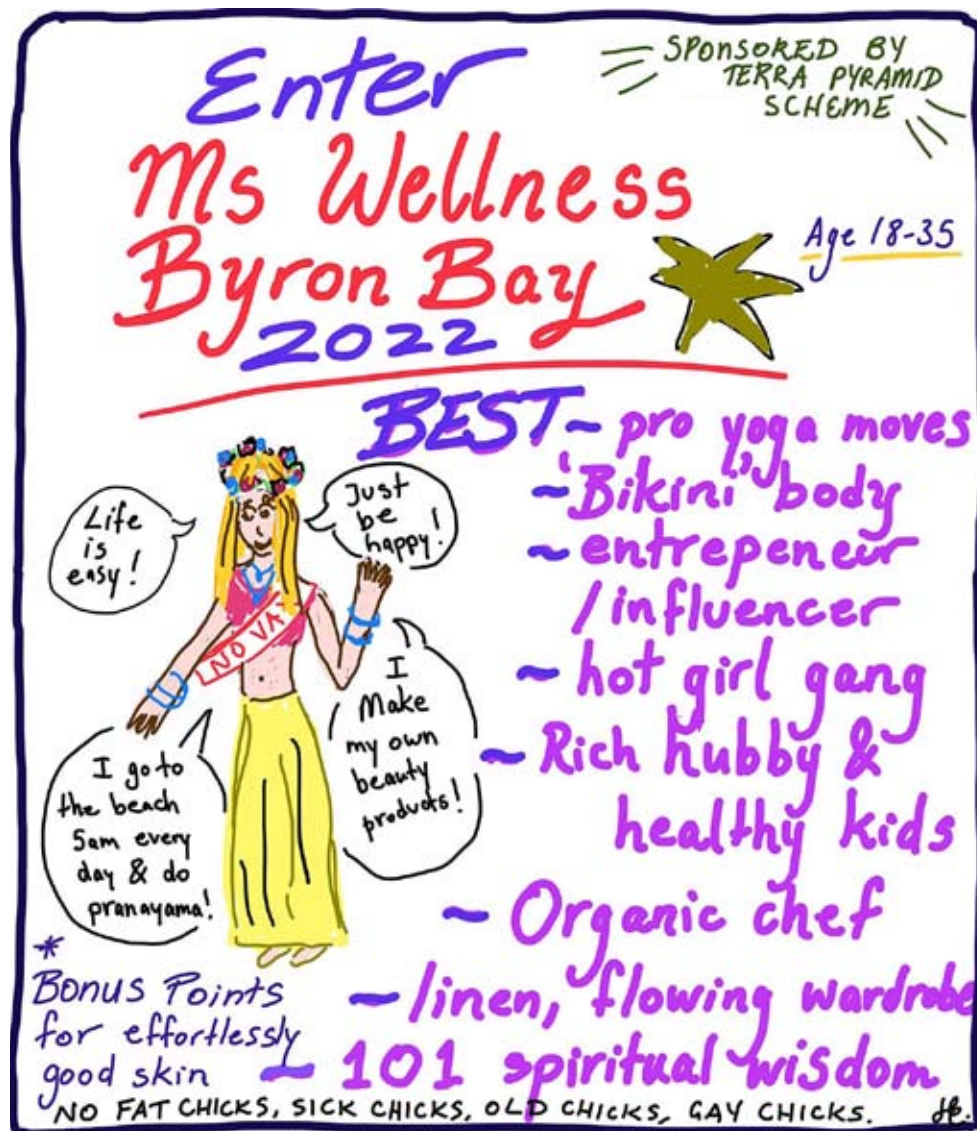 Enter
SPONSORED BY
TERRA PYRAMID
SCHEME
Ms Wellness
Byron Bay
2022
Age 18-35
BEST ~ pro yoga moves
~ 'Bikini' body
~ entrepeneur
/influencer
~ hot girl gang
~ Rich hubby &
healthy kids
~ Organic chef
~ linen, flowing wardrobe
~ 101 spiritual wisdom
Life
is
easy!
Just
be
happy!
NO VA
I
Make
my own
beauty
products!
I go to
the beach
5am every
day & do
pranayama!
*
Bonus Points
for effortlessly
good skin
NO FAT CHICKS, SICK CHICKS, OLD CHICKS, GAY CHICKS.